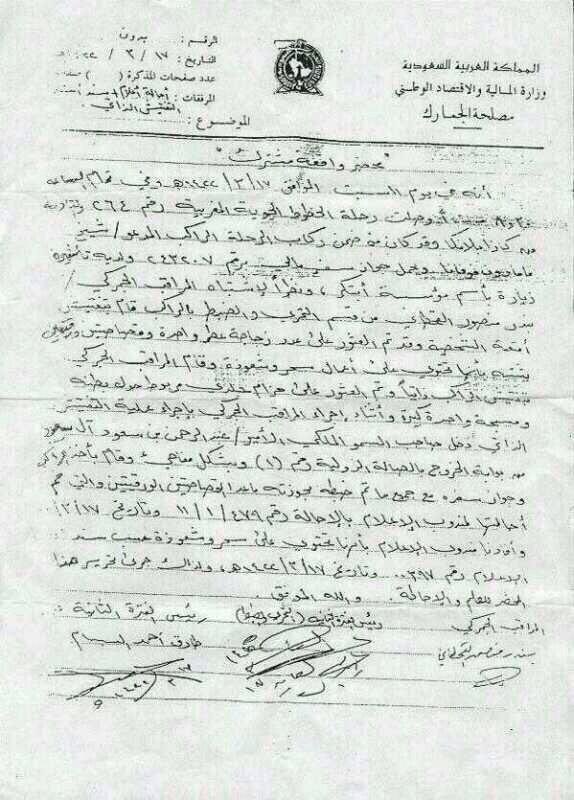 المملكة العربية السعودية
وزارة المالية والاقتصاد الوطني
مصلحة الجمارك
الرقم : بدون
التاريخ : ١٧ / ٣ / ١٤٢٢هـ
عدد صفحات المذكرة ( )
المرفقات : إحالة إعلام وسند
التفتيش الذاتي
الموضوع :
" محضر واقعة مشترك "
أنه في يوم السبت الموافق ١٧ / ٣ / ١٤٢٢هـ وفي تمام الساعة
وصلت رحلة الخطوط الجوية المغربية رقم ٢٦٤ القادمة
من كازابلانكا وقد كان من ضمن ركاب الرحلة الراكب المدعو / شيخ
ويحمل جواز سفر رقم ٢٤٣٢٠٧ ولديه تأشيرة
زيارة بأسم مؤسسة أبتكر ، ونظراً لإشتباه المراقب الجمركي /
بندر منصور القحطاني من قسم التحري والضبط بالراكب قام بتفتيش
أمتعة الشخصية وقد تم العثور على عدد زجاجة عطر واحدة وقصاصتين ورقيتين
يشتبه بأنها تحتوي على أعمال سحر وشعوذة وقام المراقب الجمركي
بتفتيش الراكب ذاتياً وتم العثور على حزام جلدي مربوط حول بطنه
ومسبحة واحدة كبيرة وأثناء إجراء المراقب الجمركي بإجراء عملية التفتيش
الذاتي دخل صاحب السمو الملكي الأمير / عبدالرحمن بن سعود آل سعود
من بوابة الخروج بالصالة الدولية رقم (١) وبشكل مفاجئ وقام بأخذ الراكب
وجواز سفره مع جميع ما تم ضبطه بحوزته ماعدا القصاصتين الورقيتين والتي تم
أحالتها لمندوب الإعلام بالإحالة رقم ٤٧٩ / ١ / ١١ وتاريخ ١٧ / ٣ /
وأفادنا مندوب الإعلام بأنها تحتوي على سحر وشعوذة حسب سند
الإعلام رقم ٣٩٧ وتاريخ ١٧ / ٣ / ١٤٢٢هـ ، ولذلك جرى تحرير هذا
المحضر للعلم والإحاطة . والله الموفق .
المراقب الجمركي
بندر منصور القحطاني
رئيس الفترة الثانية
رئيس الفترة الثانية
طارق أحمد